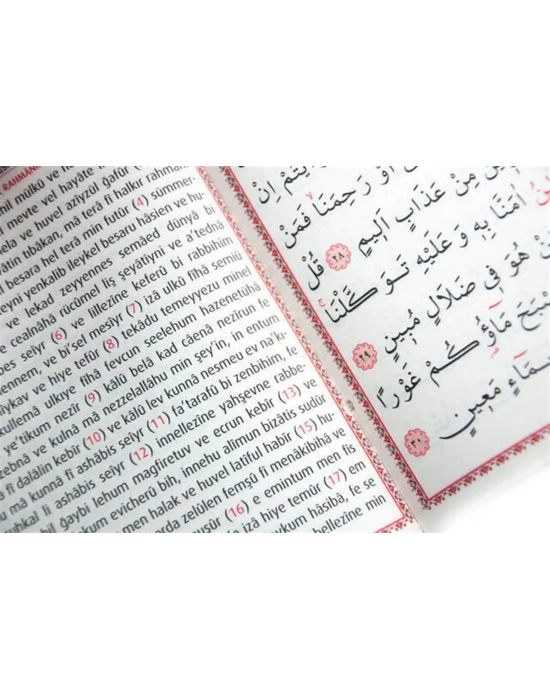 RAHMAN
hil mülkü ve h
meyte vel hayate
ela ve huvel azîyzul ğafûr
âtin tıbâkan, mâ terâ fî halkır rahman
l besara hel terâ min futûr (4) sümmer-
eyni yenkalib ileykel besaru hâsien ve hu-
ve lekad zeyyennes semâed dünyâ bi
cealnâhâ rücûmel liş şeyâtiyni ve a'tednâ
bes seîyr (6) ve lillezîne keferû bi rabbihim
ennem, ve bi'sel mesîyr (7) izâ ulkû fîhâ semiû
ve hiye tefûr (8) tekâdu temeyyezu minel
kullemâ ulkıye fîhâ fevcun seelehum hazenetühâ
e'tikum nezîr (9) kâlû belâ kad câenâ nezîrun fe
zebnâ ve kulnâ mâ nezzelallâhu min şey'in, in entum
â fî dalâlin kebîr (10) ve kâlû lev kunnâ nesmeu ev na'k-
mâ kunnâ fî ashâbis seîyr (11) fa'tarafû bi zenbihim, fe
uhkal li ashâbis seîyr (12) innellezîne yahşevne rabbe-
bil ğaybi lehum mağfiretuv ve ecrun kebîr (13) ve
kum evicherû bih, innehu alîmun bizâtis sudûr
men halak ve huvel latîful habîr (15) hu-
arda zelûlen femşû fî menâkibihâ ve
uşûr (16) e emintum men fis
izâ hiye temûr (17) em
eykum hâsibâ, fe se
bellezîne min
اِنْ
اَوْ رَحِمَنَا فَمَنْ
مِنْ عَذَابٍ اَلٖيمٍ ﴿٢٨﴾ قُلْ
اٰمَنَّا بِهٖ وَعَلَيْهِ تَوَكَّلْنَا
هُوَ فٖي ضَلَالٍ مُبٖينٍ ﴿٢٩﴾
مَٓاؤُ۬كُمْ غَوْرًا
مَعٖينٍ ﴿٣٠﴾